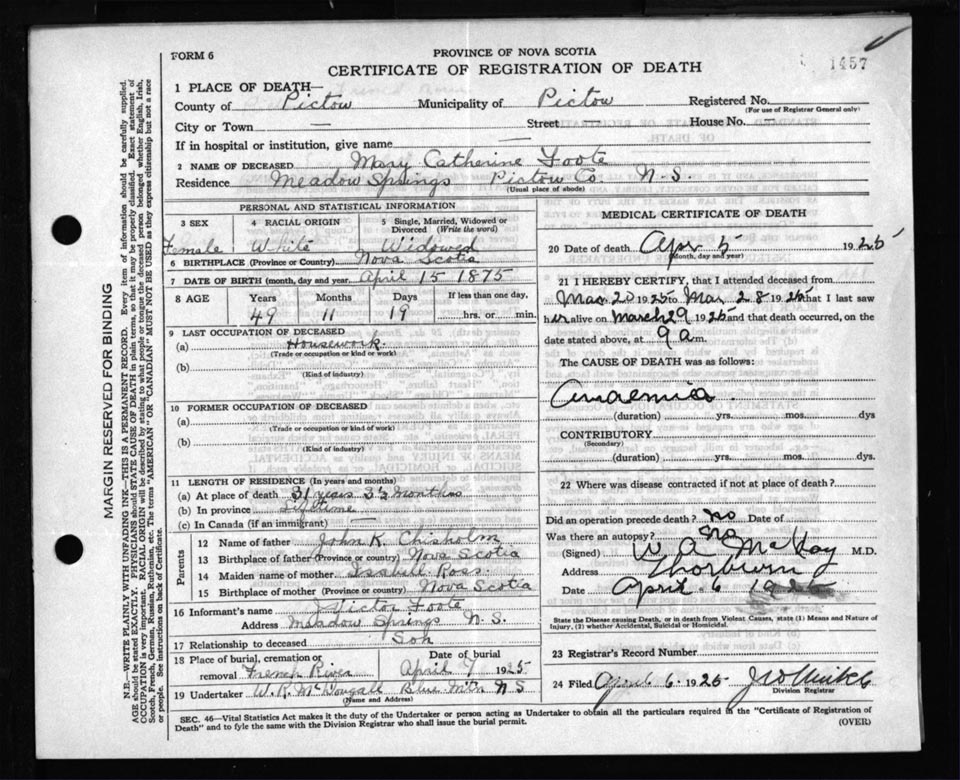 1457
FORM 6
PROVINCE OF NOVA SCOTIA
CERTIFICATE OF REGISTRATION OF DEATH
1 PLACE OF DEATH—
County of Pictou Municipality of Pictou Registered No.
(For use of Registrar General only)
City or Town — Street — House No. —
If in hospital or institution, give name —
2 NAME OF DECEASED Mary Catherine Foote
Residence Meadow Springs Pictou Co. N.S.
(Usual place of abode)
PERSONAL AND STATISTICAL INFORMATION
3 SEX 4 RACIAL ORIGIN 5 Single, Married, Widowed or
Divorced (Write the word)
Female White Widowed
6 BIRTHPLACE (Province or Country) Nova Scotia
7 DATE OF BIRTH (month, day and year) April 15 1875
8 AGE Years Months Days If less than one day,
49 11 19 hrs. or min.
9 LAST OCCUPATION OF DECEASED
(a) Housework.
(Trade or occupation or kind of work)
(b)
(Kind of industry)
10 FORMER OCCUPATION OF DECEASED
(a)
(Trade or occupation or kind of work)
(b)
(Kind of industry)
11 LENGTH OF RESIDENCE (In years and months)
(a) At place of death 31 years 3½ months
(b) In province Lifetime
(c) In Canada (if an immigrant) —
Parents
12 Name of father John K. Chisholm
13 Birthplace of father (Province or country) Nova Scotia
14 Maiden name of mother Isabell Ross.
15 Birthplace of mother (Province or country) Nova Scotia
16 Informant's name Victor Foote
Address Meadow Springs N.S.
17 Relationship to deceased Son
18 Place of burial, cremation or removal Date of burial
French River April 7 1925
19 Undertaker W. R. McDougall Blue Mtn N S
(Name and Address)
MEDICAL CERTIFICATE OF DEATH
20 Date of death Apr 5 1925
(Month, day and year)
21 I HEREBY CERTIFY, that I attended deceased from
Mar 20 1925 to Mar 28 1925 that I last saw
her alive on March 29 1925 and that death occurred, on the
date stated above, at 9 a m.
The CAUSE OF DEATH was as follows:
Anaemia
(duration) yrs. mos. dys
CONTRIBUTORY
(Secondary)
(duration) yrs. mos. dys.
22 Where was disease contracted if not at place of death?
Did an operation precede death? no Date of
Was there an autopsy? no
(Signed) W. A. McKay M.D.
Address Thorburn
Date April 6 1925
State the Disease causing Death, or in death from Violent Causes, state (1) Means and Nature of
Injury, (2) whether Accidental, Suicidal or Homicidal.
23 Registrar's Record Number
24 Filed April 6 1925
Division Registrar
SEC. 46—Vital Statistics Act makes it the duty of the Undertaker or person acting as Undertaker to obtain all the particulars required in the "Certificate of Registration of
Death" and to fyle the same with the Division Registrar who shall issue the burial permit.
(OVER)
MARGIN RESERVED FOR BINDING
N.B.—WRITE PLAINLY WITH UNFADING INK—THIS IS A PERMANENT RECORD. Every item of information should be carefully supplied.
AGE should be stated EXACTLY. PHYSICIANS should STATE CAUSE OF DEATH in plain terms, so that it may be properly classified. Exact statement of
OCCUPATION is very important. RACIAL ORIGIN will be described by stating to what people or tongue the deceased person belonged, whether English, Irish,
Scotch, French, German, Russian, Ruthenian, etc. The terms "AMERICAN" OR "CANADIAN" MUST NOT BE USED as they express citizenship but not a race
or people. See instructions on back of Certificate.